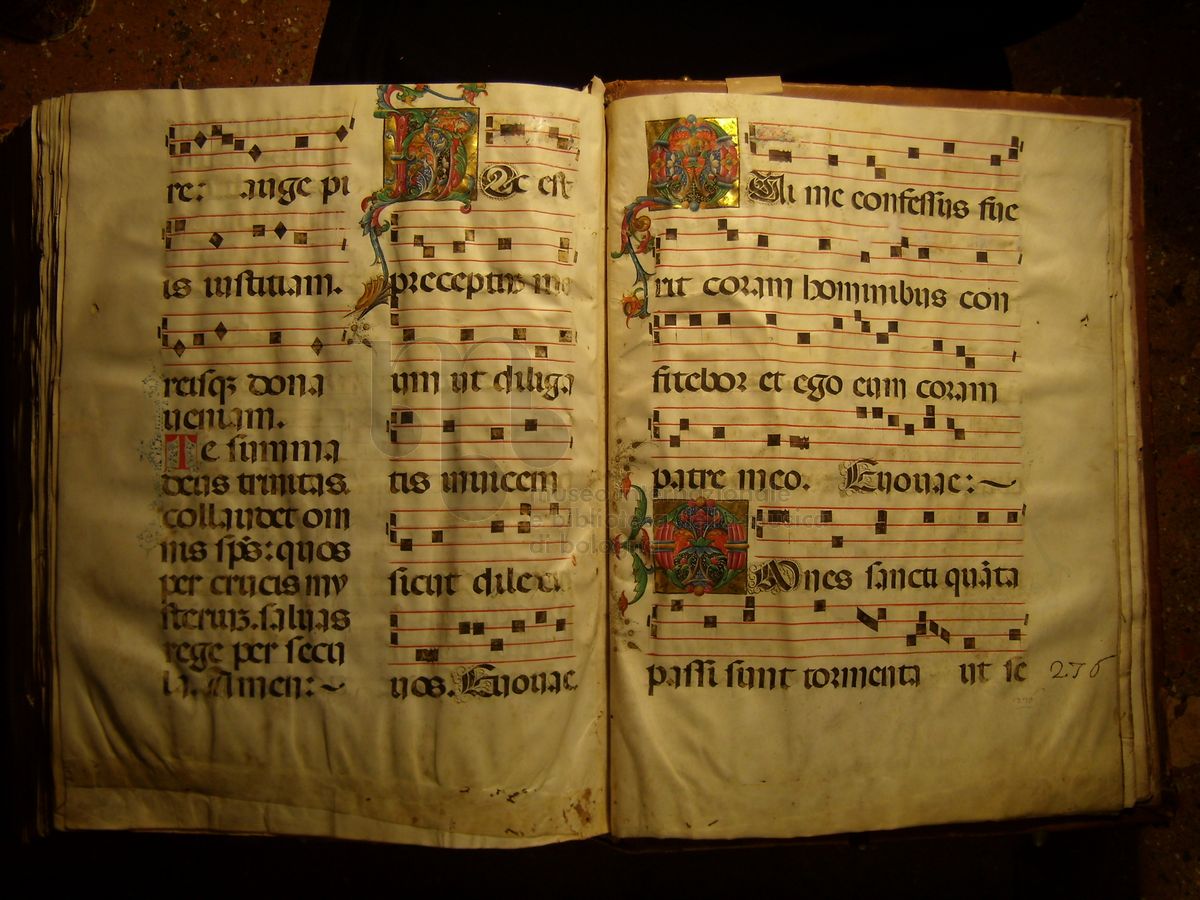 re: ange pi
is iustitiam.
reisq; dona
ueniam.
Te summa
deus trinitas.
collaudet om
nis sp̄s: quos
per crucis my
sterium saluas
rege per secu
la. Amen:~
HAc est
preceptum me
um ut diliga
tis inuicem
sicut dilexi
uos. Euouae
QUi me confessus fue
rit coram hominibus con
fitebor et ego eum coram
patre meo. Euouae:~
OMnes sancti quāta
passi sunt tormenta ut se
276
museo internazionale
e biblioteca della musica
di bologna